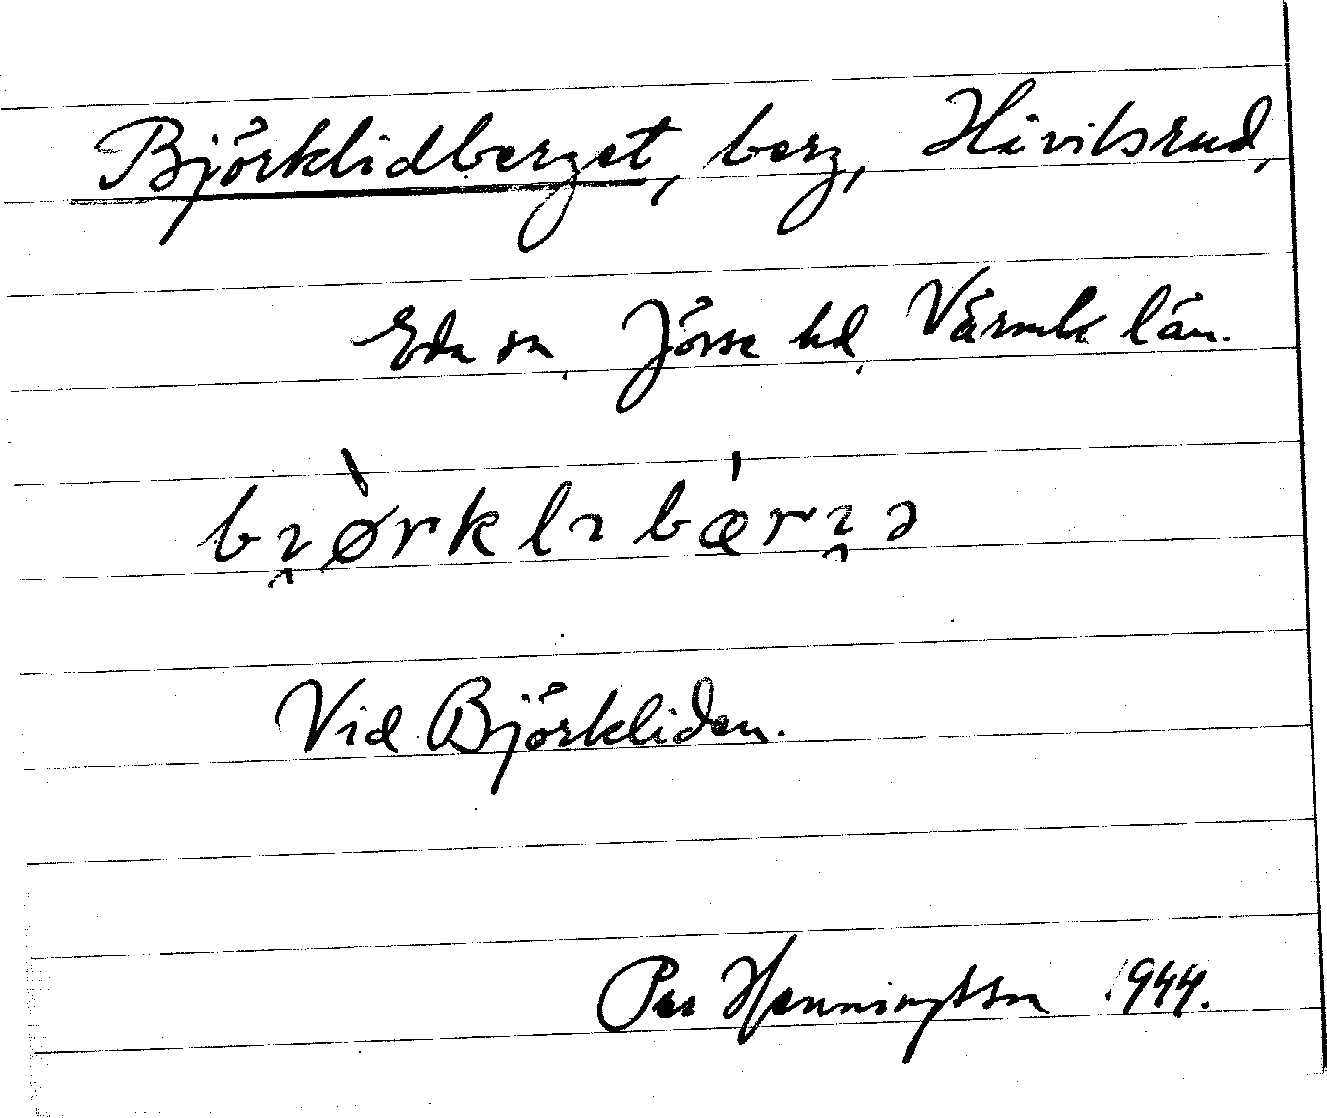 Björklidberget, berg, Hävilsrud,
Eda sn, Jösse hd, Värmls län.
bi̯ørklibæri̯ə
Vid Björkliden.
Per Henningsson 1944.